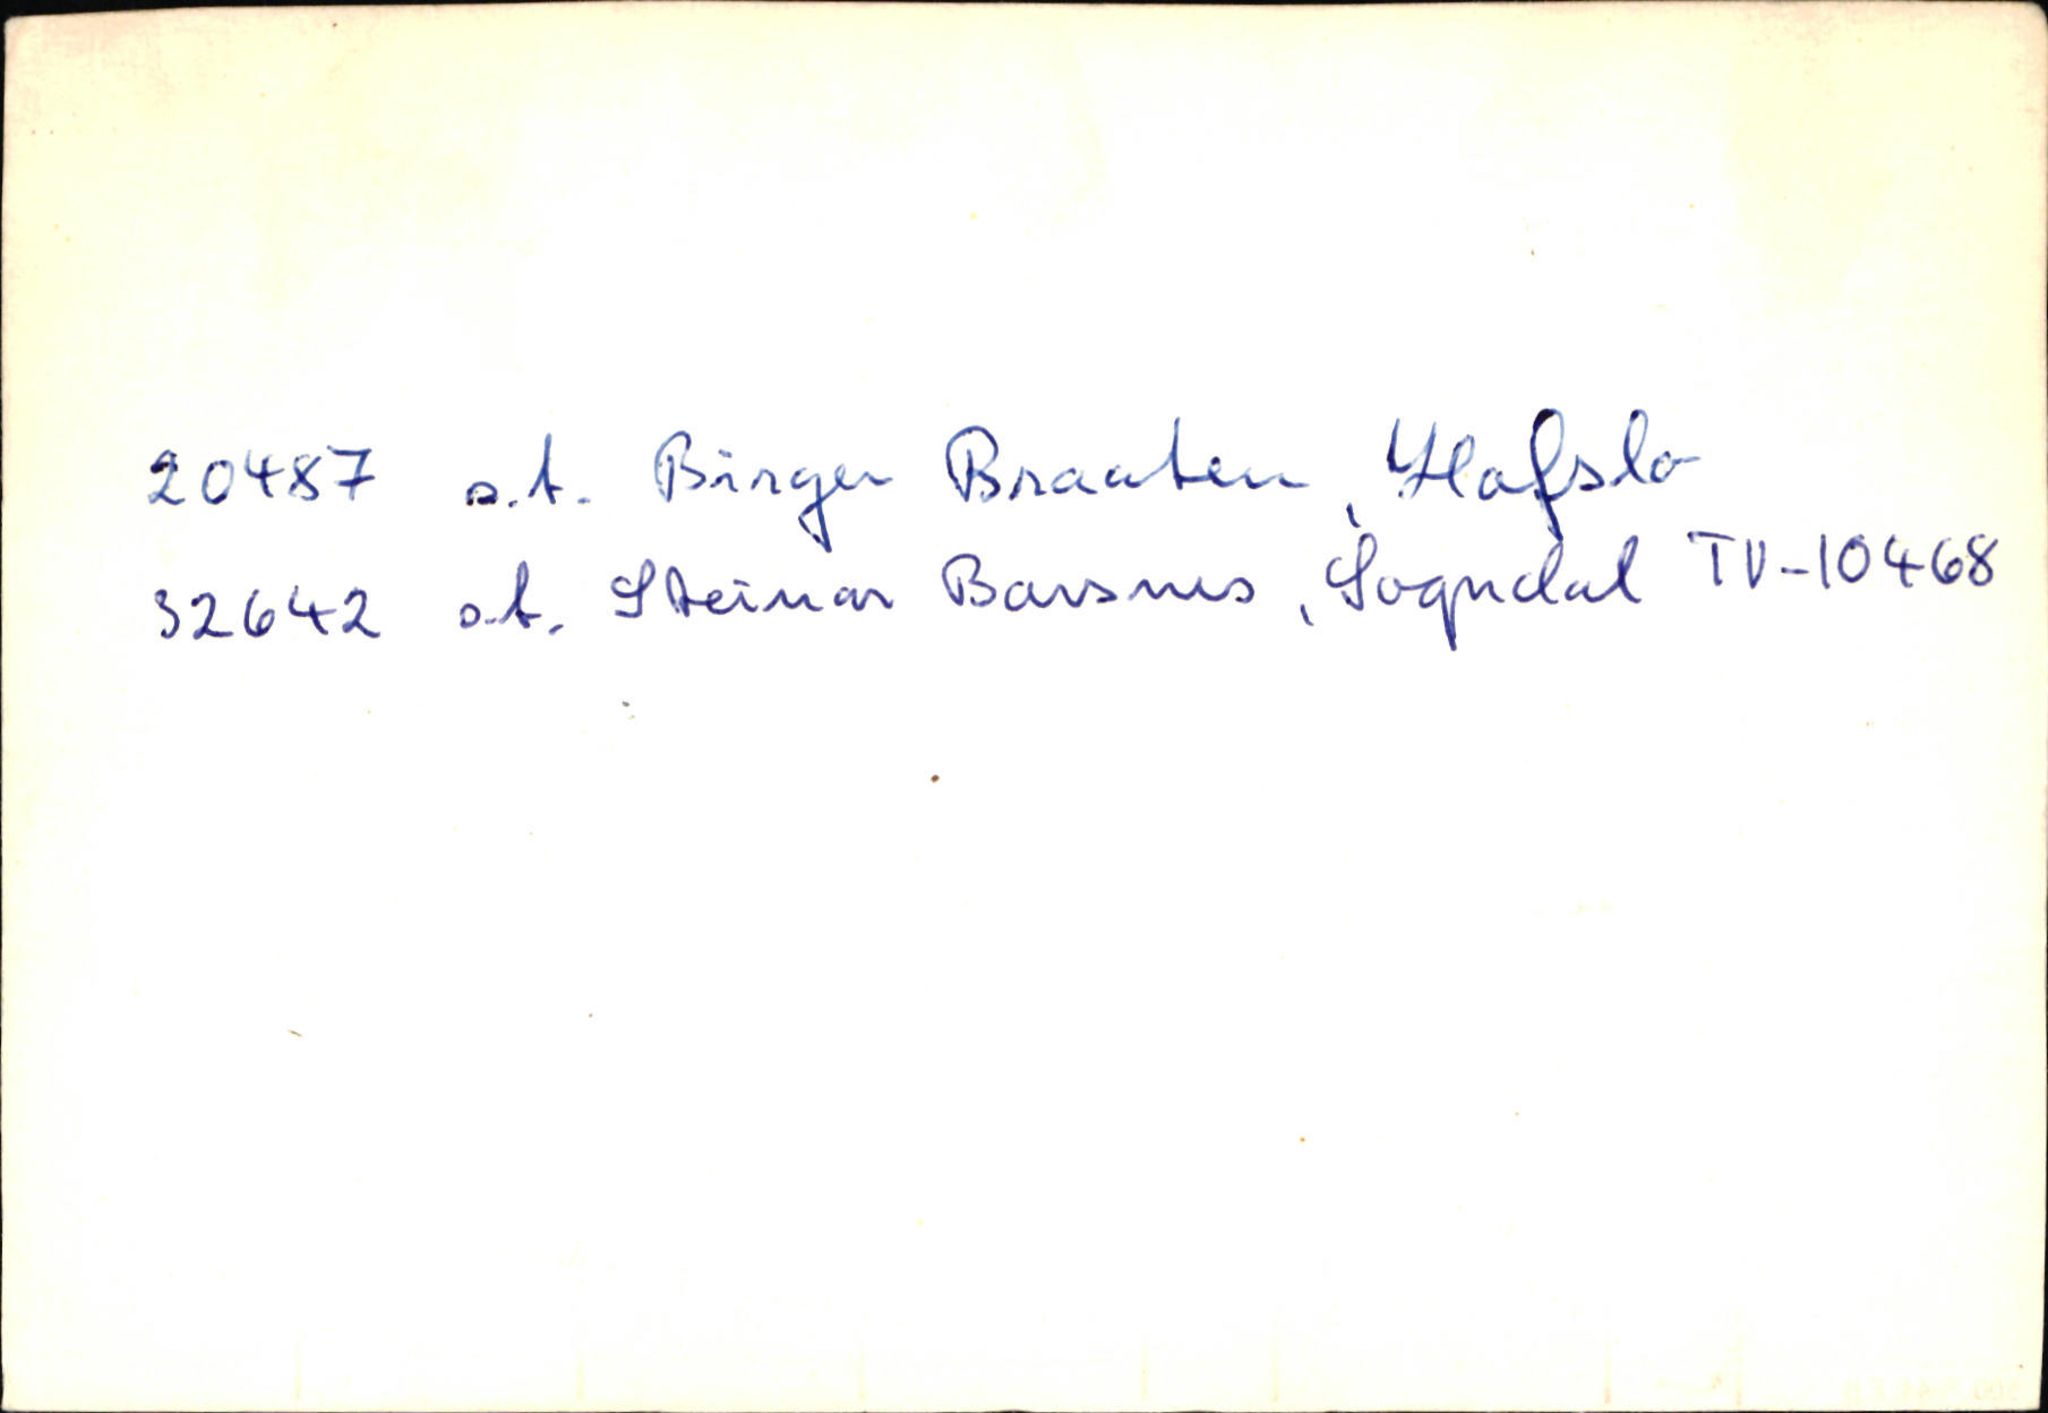 20487 o.t. Birger Braaten, Hafslo
32642 o.t. Steinar Barsnes, Sogndal TV-10468